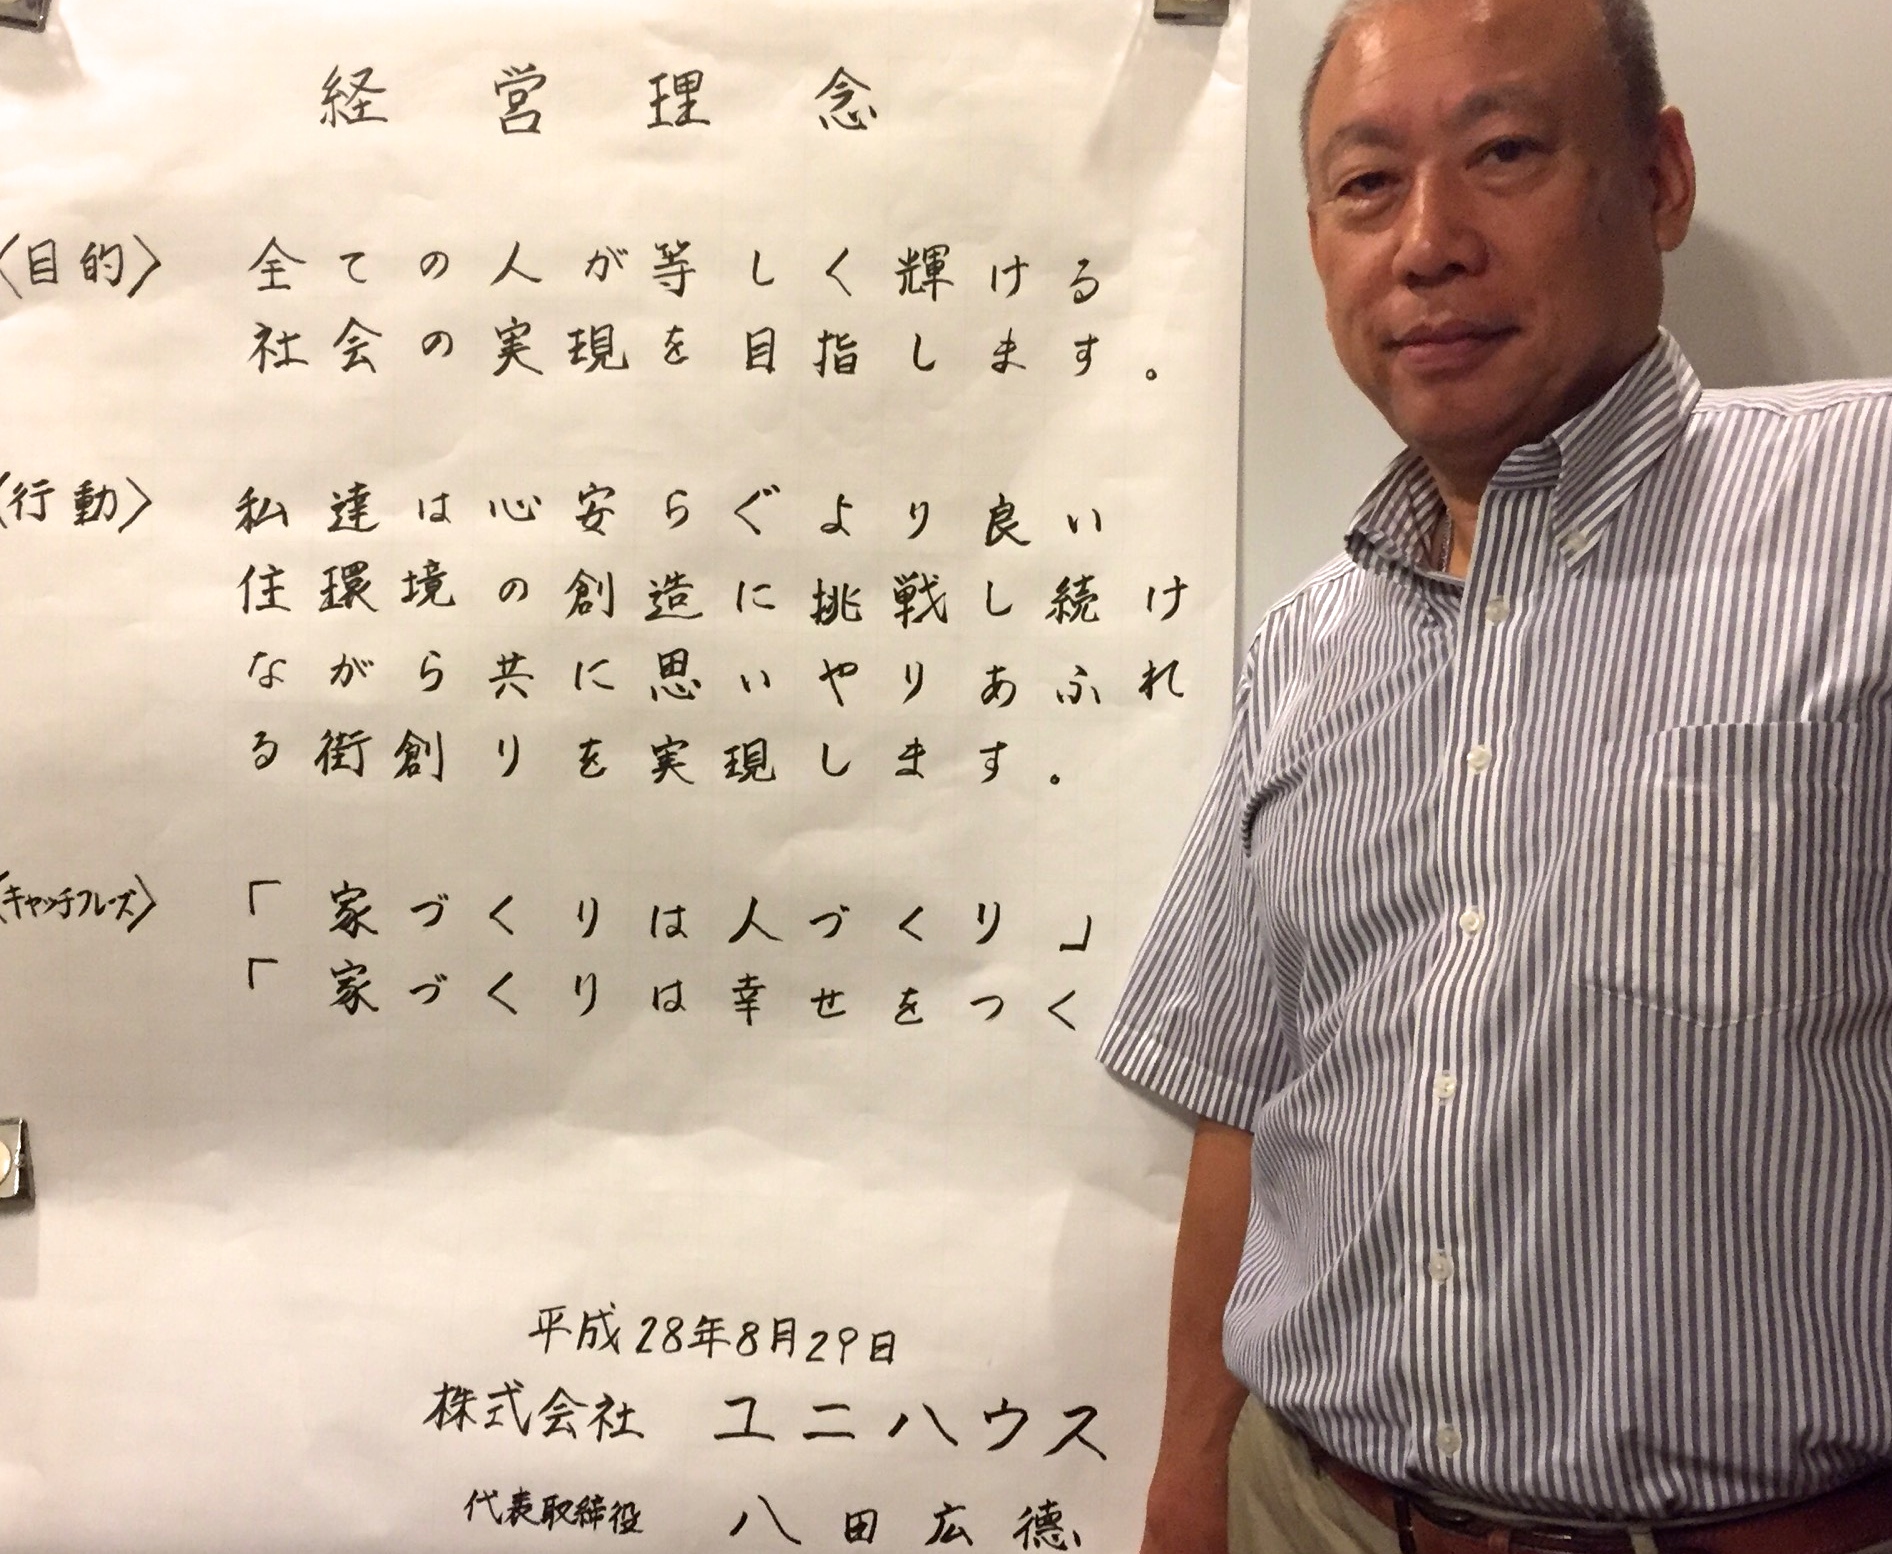 経営理念
〈目的〉 全ての人が等しく輝ける
社会の実現を目指します。
〈行動〉 私達は心安らぐより良い
住環境の創造に挑戦し続け
ながら共に思いやりあふれ
る街創りを実現します。
〈キャッチフレーズ〉 「家づくりは人づくり」
「家づくりは幸せをつく
平成28年8月29日
株式会社 ユニハウス
代表取締役 八田広徳